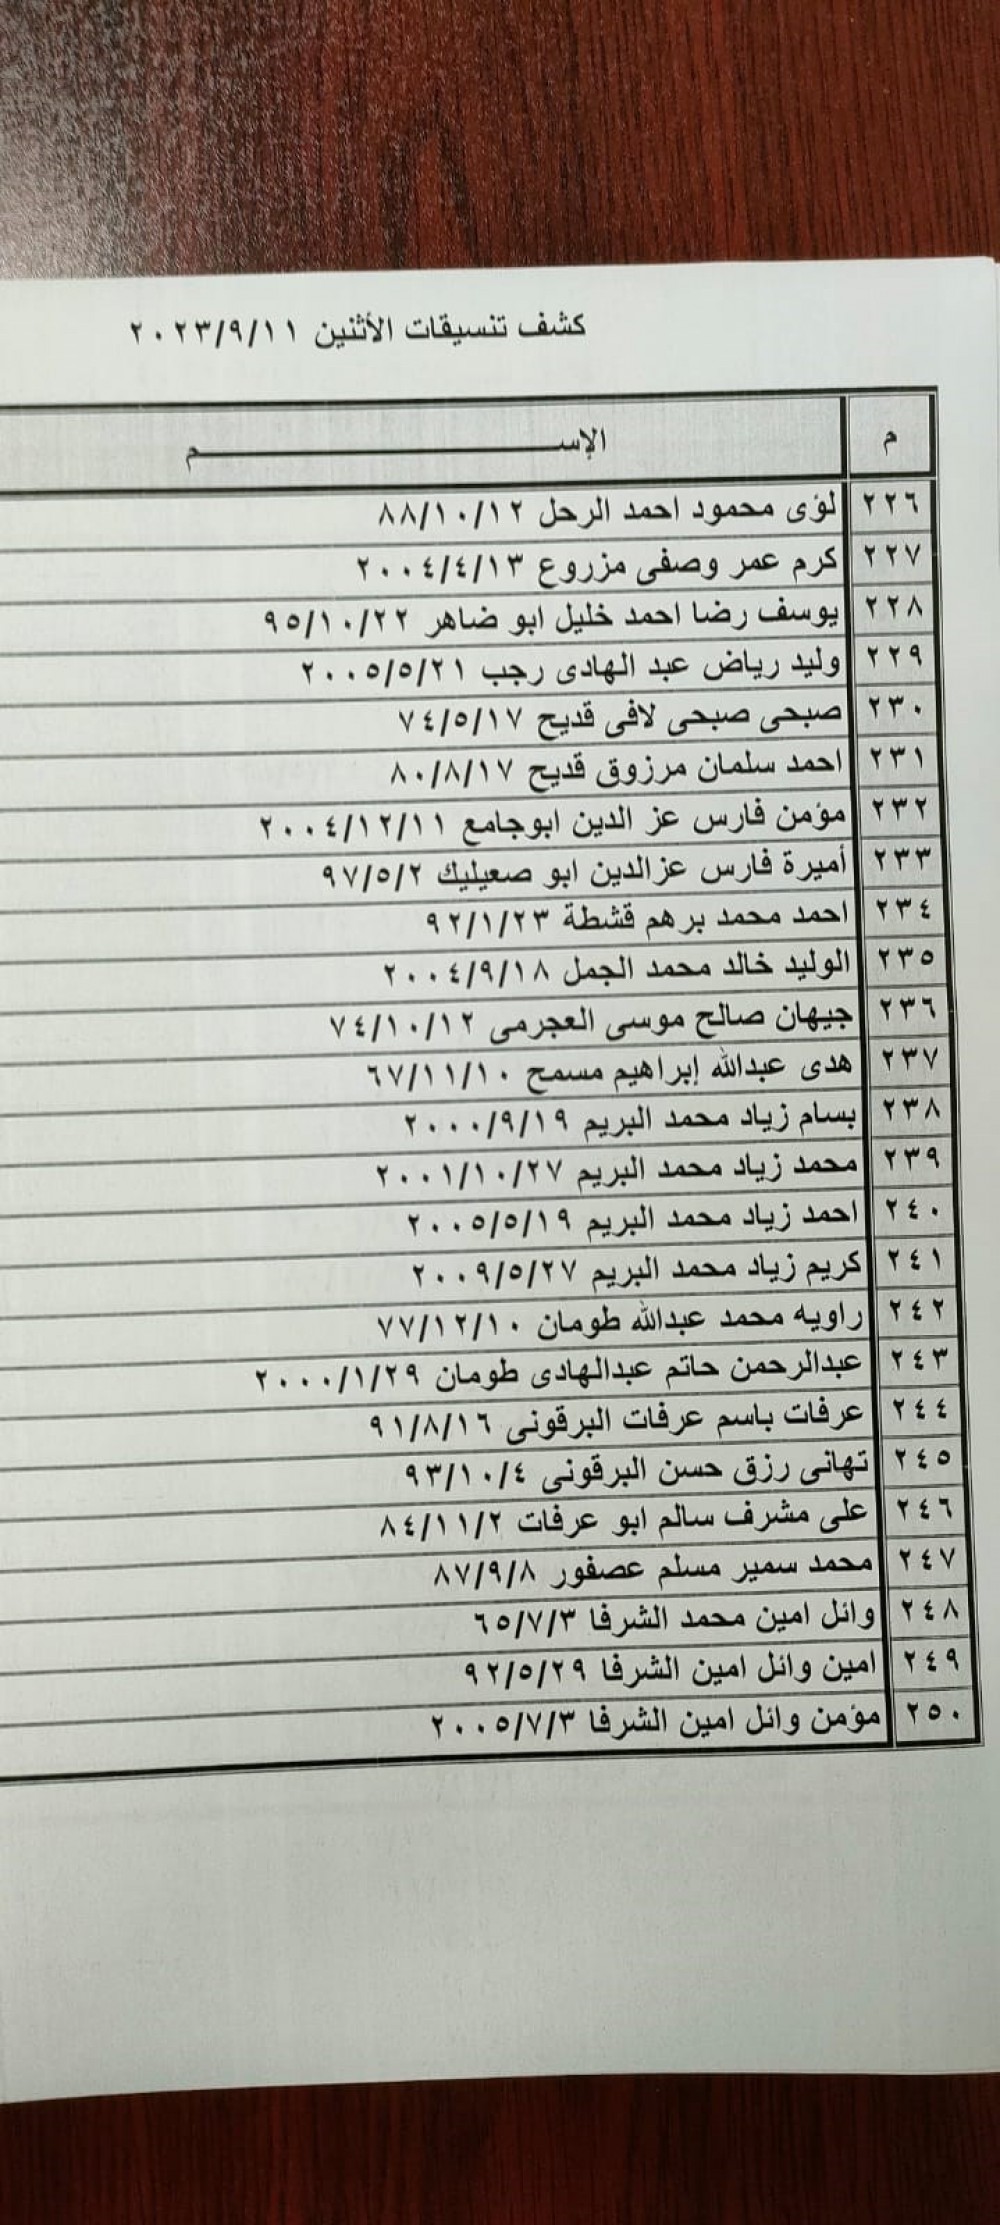 كشف تنسيقات الأثنين ٢٠٢٣/٩/١١
م الإســـــــــــــــــــــــم
٢٢٦ لؤى محمود احمد الرحل ٨٨/١٠/١٢
٢٢٧ كرم عمر وصفى مزروع ٢٠٠٤/٤/١٣
٢٢٨ يوسف رضا احمد خليل ابو ضاهر ٩٥/١٠/٢٢
٢٢٩ وليد رياض عبد الهادى رجب ٢٠٠٥/٥/٢١
٢٣٠ صبحى صبحى لافى قديح ٧٤/٥/١٧
٢٣١ احمد سلمان مرزوق قديح ٨٠/٨/١٧
٢٣٢ مؤمن فارس عز الدين ابوجامع ٢٠٠٤/١٢/١١
٢٣٣ أميرة فارس عزالدين ابو صعيليك ٩٧/٥/٢
٢٣٤ احمد محمد برهم قشطة ٩٢/١/٢٣
٢٣٥ الوليد خالد محمد الجمل ٢٠٠٤/٩/١٨
٢٣٦ جيهان صالح موسى العجرمى ٧٤/١٠/١٢
٢٣٧ هدى عبدالله إبراهيم مسمح ٦٧/١١/١٠
٢٣٨ بسام زياد محمد البريم ٢٠٠٠/٩/١٩
٢٣٩ محمد زياد محمد البريم ٢٠٠١/١٠/٢٧
٢٤٠ احمد زياد محمد البريم ٢٠٠٥/٥/١٩
٢٤١ كريم زياد محمد البريم ٢٠٠٩/٥/٢٧
٢٤٢ راويه محمد عبدالله طومان ٧٧/١٢/١٠
٢٤٣ عبدالرحمن حاتم عبدالهادى طومان ٢٠٠٠/١/٢٩
٢٤٤ عرفات باسم عرفات البرقونى ٩١/٨/١٦
٢٤٥ تهانى رزق حسن البرقونى ٩٣/١٠/٤
٢٤٦ على مشرف سالم ابو عرفات ٨٤/١١/٢
٢٤٧ محمد سمير مسلم عصفور ٨٧/٩/٨
٢٤٨ وائل امين محمد الشرفا ٦٥/٧/٣
٢٤٩ امين وائل امين الشرفا ٩٢/٥/٢٩
٢٥٠ مؤمن وائل امين الشرفا ٢٠٠٥/٧/٣